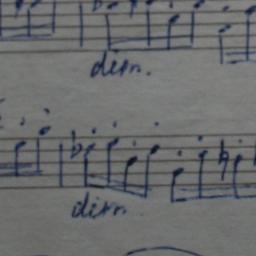 dim.
dim.